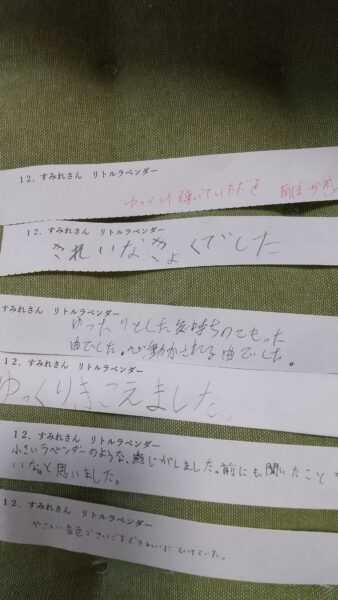 12. すみれさん リトルラベンダー
ゆっくり弾いていただき
12. すみれさん リトルラベンダー
きれいなきょくでした
すみれさん リトルラベンダー
ゆったりとした気持ちの
曲でした。心動かされる曲でした。
12. すみれさん リトルラベンダー
ゆっくりきこえました。
12. すみれさん リトルラベンダー
小さいラベンダーのような、感じがしました。前にも聞いたこと
いなと思いました。
12. すみれさん リトルラベンダー
やさしい音色でさいごまできれいに ひけていた。